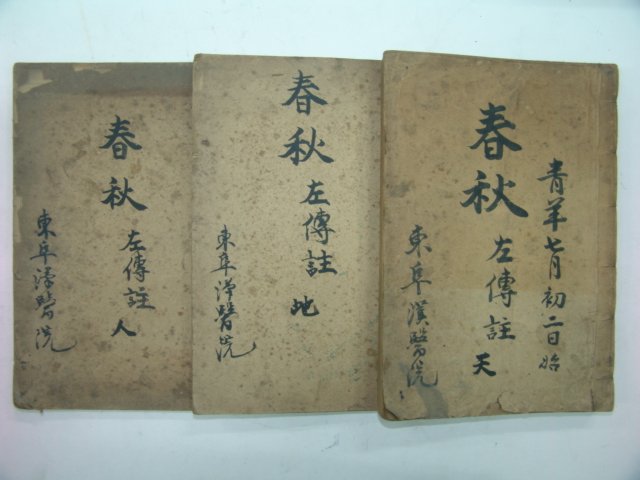 青羊七月初二日始
春秋
左傳註 天
東阜漢醫院
春秋
左傳註 地
東阜漢醫院
春秋
左傳註 人
東阜漢醫院